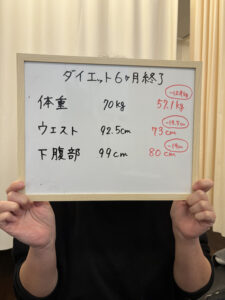 ダイエット6ヶ月終了
-12.9kg
体重 70kg 57.1kg
-19.5cm
ウエスト 92.5cm 73cm
-19cm
下腹部 99cm 80cm